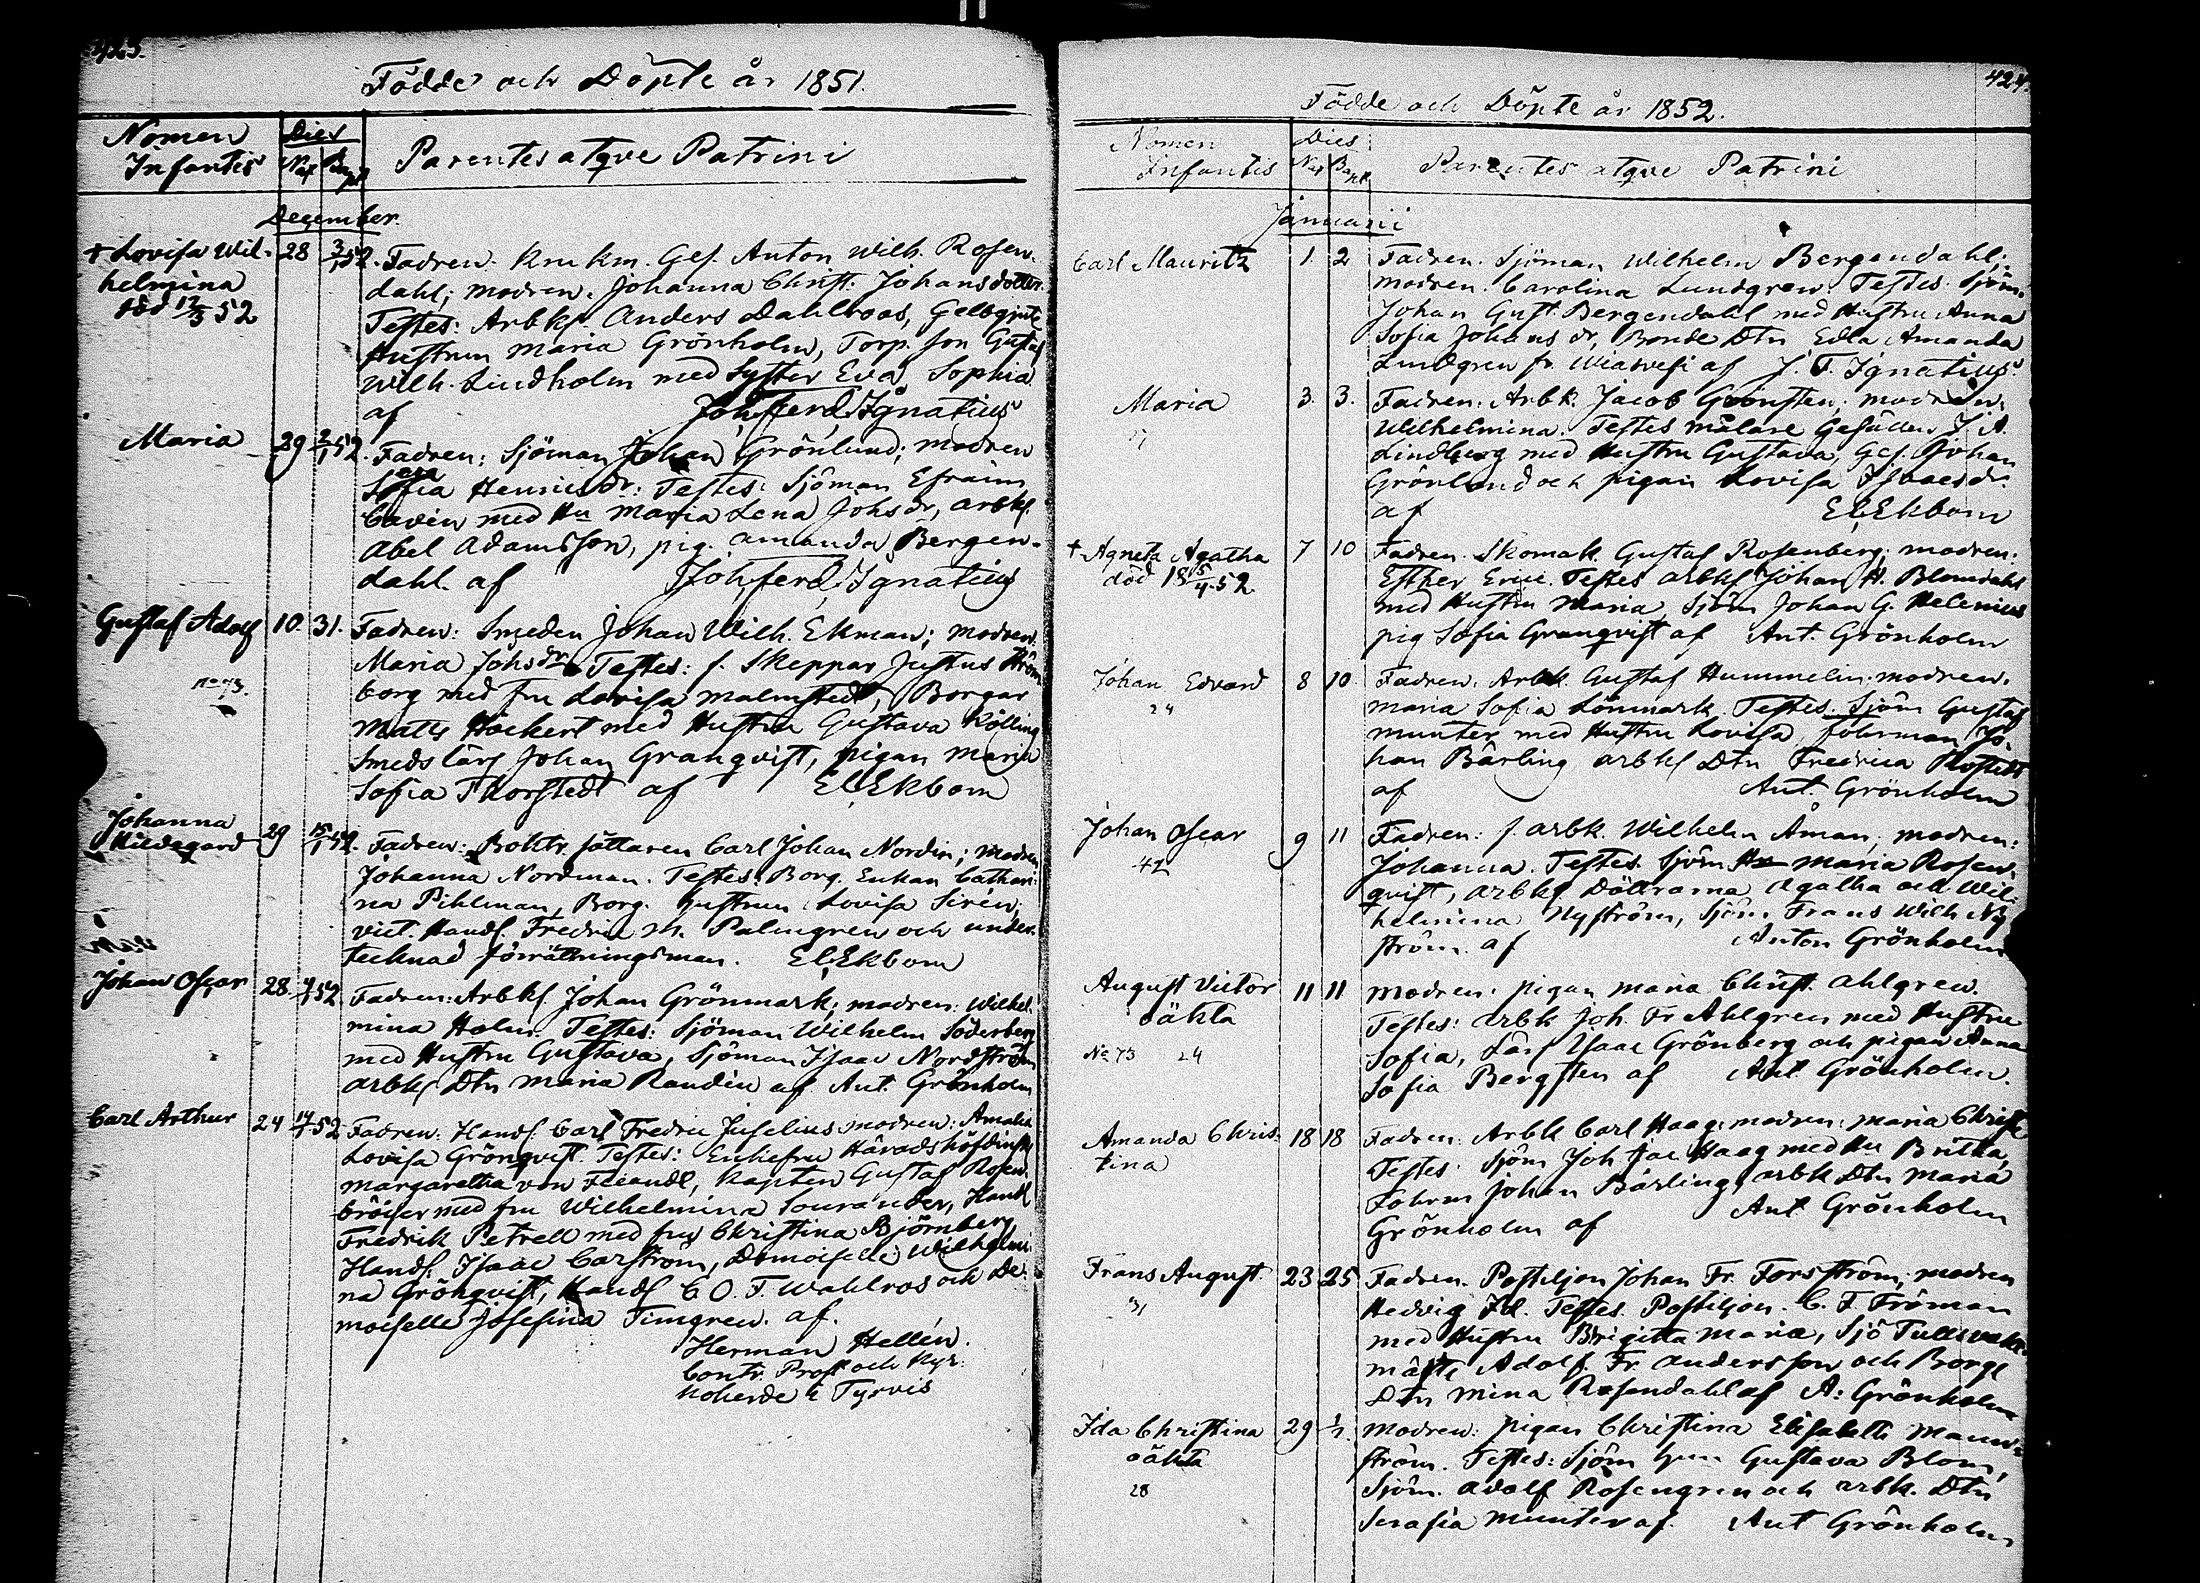 423.
Födde och Döpte år 1851.
Nomen Infantis
Dies
Nat Bapt
Parentes atqve Patrini
December.
+ Lovisa Wil- 28 3/1 52. Fadren: Krukm. Ges. Anton Wilh. Rosen-
helmina dahl; modren: Johanna Christ. Johansdotter.
död 12/3 52 Testes: Arbks. Anders Dahlroos, Gelbgjut.
Hustrun Maria Grönholm, Torp. son Gustaf
Wilh. Lindholm med Syster Eva Sophia
af Joh. Ferd. Ignatius
Maria 29 2/1 52. Fadren: Sjöman Johan Grönlund; modren
Sofia Henricsdr: Testes: Sjöman Efraim
Cavén med Hu Maria Lena Johsdr, arbks.
Abel Adamsson, pig. Amanda Bergen-
dahl. af Joh. Ferd. Ignatius
Gustaf Adolf 10. 31. Fadren: Smeden Johan Wilh. Ekman; modren
Maria Johsdr. Testes: f. Skeppar Justus Ström
No 73. borg med fru Lovisa Malmstedt, Borgar
Matts Höckert med Hustru Gustava Kölling
Smedslärl Johan Granqvist, pigan Maria
Sofia Thorstedt af El. Ekbom
Johanna 29 15/1 52. Fadren: Boktr. sättaren Carl Johan Nordin; modren
Hildegard Johanna Nordman. Testes: Borg. Enkan Cathari-
na Pihlman, Borg. Hustrun Lovisa Sirén,
vict. Handl. Fredric M. Palmgren och under-
tecknad förrättningsman. El. Ekbom
Johan Oscar 28 4/1 52 Fadren: Arbks Johan Grönmark; modren: Wilhel-
mina Holm. Testes: Sjöman Wilhelm Söderberg
med Hustru Gustava, Sjöman Isaac Nordström
arbks Dtn Maria Randin af Ant. Grönholm
Carl Arthur 24 14/1 52 Fadren: Handl. Carl Fredric Juselius modren: Amalia
Lovisa Grönqvist. Testes: Enkefru Häradshöfdinsk
Margaretha von Fieandt, Kapten Gustaf Rosen-
bröijer med fru Wilhelmina Sourander, Handl
Fredrik Petrell med fru Christina Björnberg
Handl. Isaac Carström, Demoiselle Wilhelmi-
na Grönqvist, Handl C. O. F. Wahlros och De-
moiselle Josefina Timgren. af.
Herman Hellén.
Contr. Prost och Kyr-
koherde i Tyrvis
424.
Födde och Döpte år 1852.
Nomen Infantis
Dies
Nat Bapt
Parentes atqve Patrini
Januarii
Carl Mauritz 1. 2 Fadren. Sjöman Wilhelm Bergendahl;
modren. Carolina Lundgren. Testes. Sjöm.
Johan Gust. Bergendahl med Hustru Anna
Sofia Johansdr, Bonde Dtn Edla Amanda
Lundgren fr. Wiasvesi af J. F. Ignatius.
Maria 3. 3. Fadren: Arbk. Jacob Grönsten; modren.
Wilhelmina. Testes målare Gesällen J. A.
Lindberg med Hustru Gustava, Ges. Johan
Grönlund och pigan Lovisa Isaacsdr.
af El. Ekbom
+ Agneta Agatha 7 10 Fadren. Skomak Gustaf Rosenberg; modren:
död 15/4 52. Esther Eric. Testes arbks Johan H. Blomdahl
med Hustru Maria, Sjöm Johan G. Helenius
pig Sofia Granqvist af Ant. Grönholm
Johan Edvard 8 10 Fadren: Arbk. Gustaf Hummelin. modren.
24 Maria Sofia Lönmark. Testes. Sjöm Gustaf
Munter med Hustru Lovisa, fohrman Jo-
han Bärling arbks Dtn Fredrica Rostedt
af Ant. Grönholm
Johan Oscar 9 11 Fadren: f. arbk. Wilhelm Åman, modren:
42 Johanna. Testes. Sjöm Hu Maria Rosen-
qvist, arbks Döttrarna Agatha och Wil-
helmina Nyström, Sjöm. Frans Wilh Ny-
ström. af Anton Grönholm
August Victor 11 11 Modren: pigan Maria Christ. Ahlgren.
oäkta Testes: arbk Joh. Fr Ahlgren med Hustru
No 73 24 Sofia, Lärl Isaac Grönberg och pigan Anna
Sofia Bergsten af Ant. Grönholm.
Amanda Chris- 18 18 Fadren: Arbk Carl Haag; modren: Maria Christ.
tina Testes. Sjöm Joh Isac Haag med Hu Britha,
Fohrm Johan Bärling, arbk Dtn Maria
Grönholm af Ant Grönholm
Frans August. 23 25 Fadren. Postiljon Johan Fr. Forsström; modren
31 Hedvig Testes. Postiljon. C. F. Fröman
med Hustru Brigitta Maria, Sjö Tullvakt-
mäst. Adolf Fr. Andersson och Borge
Dtn Mina Rosendahl af A. Grönholm
Ida Christina 29 1/2. Modren: pigan Christina Elisabeth Mann-
oäkta ström. Testes: Sjöm Gustava Blom,
28 Sjöm. Adolf Rosengren och arbk. Dtn
Serafia Munter af. Ant Grönholm